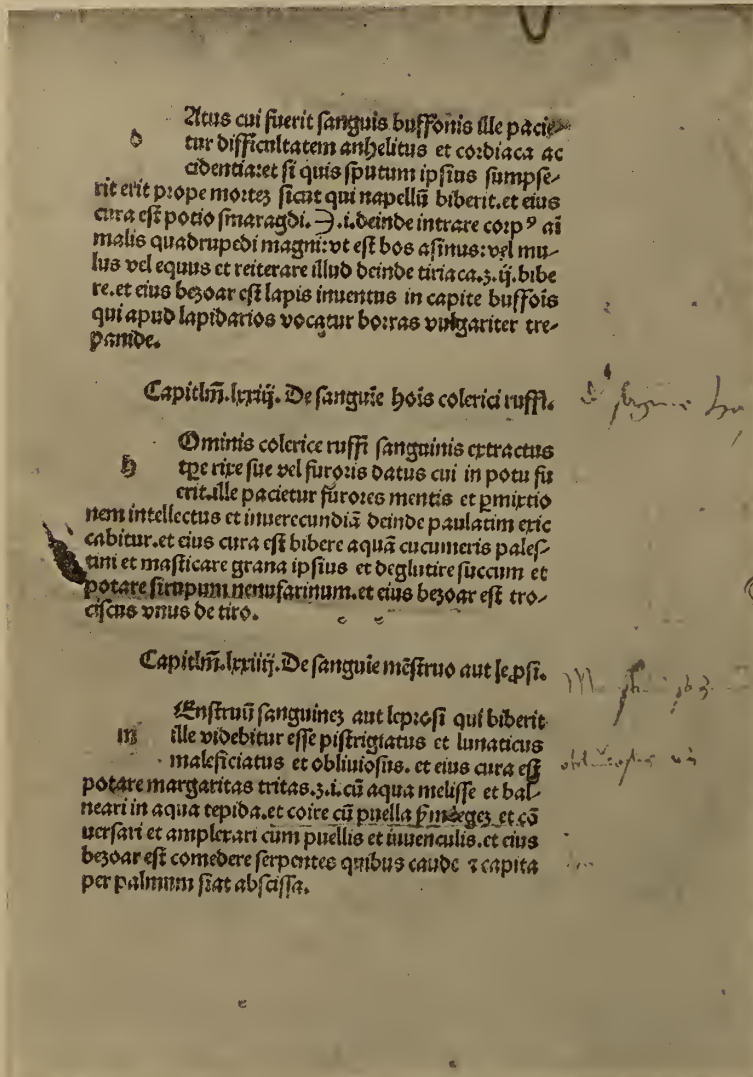 d Atus cui fuerit sanguis buffonis ille pacie-
tur difficultatem anhelitus et cordiaca ac
cidentia:et si quis sputum ipsius sumpse-
rit erit prope morteꝫ sicut qui napellũ biberit.et eius
cura est potio smaragdi. ℈.i.deinde intrare corpꝰ ai
malis quadrupedi magni:vt est bos asinus:vel mu-
lus vel equus et reiterare illud deinde tiriaca.ʒ.ij.bibe
re.et eius bezoar est lapis inuentus in capite buffois
qui apud lapidarios vocatur borras vulgariter tre-
panide.
Capitlm̃.lxxiij. De sanguĩe hois colerici ruffi.
h Ominis colerice ruffi sanguinis extractus
tꝑe rixe sue vel furoris datus cui in potu fu
erit.ille pacietur furores mentis et ꝑmixtio
nem intellectus et inuerecundiã deinde paulatim exic
cabitur.et eius cura est bibere aquã cucumeris pales-
tini et masticare grana ipsius et deglutire succum et
potare sirupum nenufarinum.et eius bezoar est tro-
ciscus vnus de tiro.
Capitlm̃.lxxiiij. De sanguĩe mẽstruo aut lepsi.
m Enstruũ sanguineꝫ aut leprosi qui biberit
ille videbitur esse pistrigiatus et lunaticus
maleficiatus et obliuiosus. et eius cura est
potare margaritas tritas.ʒ.i.cũ aqua melisse et bal-
neari in aqua tepida.et coire cũ puella et cõ
uersari et amplexari cum puellis et iuuenculis.et eius
bezoar est comedere serpentes quibus caude ⁊ capita
per palmum fiat abscissa.